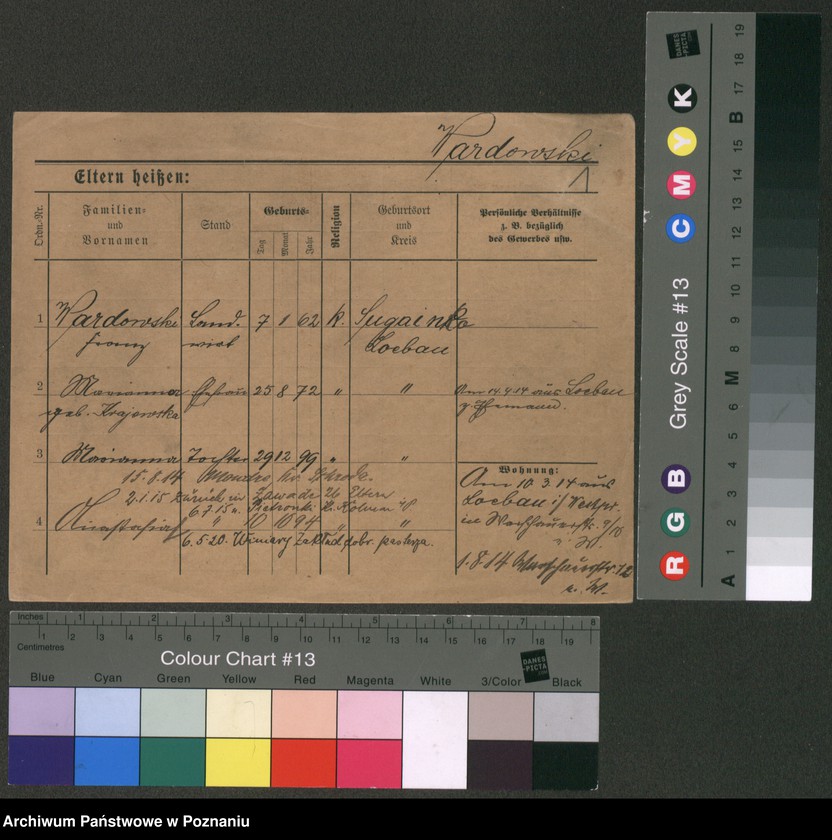 Wardowski
1
Eltern heißen:
Ordn.-Nr.
Familien- und Vornamen
Stand
Geburts-
Tag
Monat
Jahr
Religion
Geburtsort und Kreis
Persönliche Verhältnisse
z. B. bezüglich
des Gewerbes usw.
1 Wardowski Land- 7 1 62 k. Lugainko
Franz wirt Loebau
2 Marianna Ehefrau 25 8 72 " "
Am 14.4.14 aus Loebau
geb. Krajewska
z. Ehemann.
3 Marianna Tochter 29 12 99 " "
15.8.14 Schroda.
2.1.15 Zurück in Zawade zu Eltern
6.7.15 n. Pietronki Kr. Kolmar i/P
4 " 10 10 94 "
6.5.20. Winiary Zakład dobr. pasterza.
Wohnung:
Am 10 3.14 aus
Loebau i/ Westpr.
in
1.8.14 Warschauerstr. 12
b. W.
Inches 1 2 3 4 5 6 7 8
1 2 3 4 5 6 7 8 9 10 11 12 13 14 15 16 17 18 19
Centimetres
Colour Chart #13
DANES-PICTA.COM
Blue Cyan Green Yellow Red Magenta White 3/Color Black
Grey Scale #13
DANES-PICTA.COM
R G B C M Y K
A 1 2 3 4 5 6 M 8 9 10 11 12 13 14 15 B 17 18 19
Archiwum Państwowe w Poznaniu